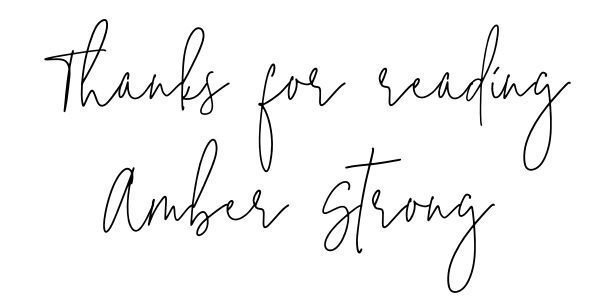 Thanks for reading
Amber Strong